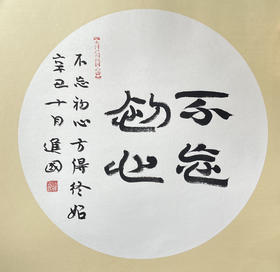 不忘
初心
不忘初心方得终始
辛丑十月进国